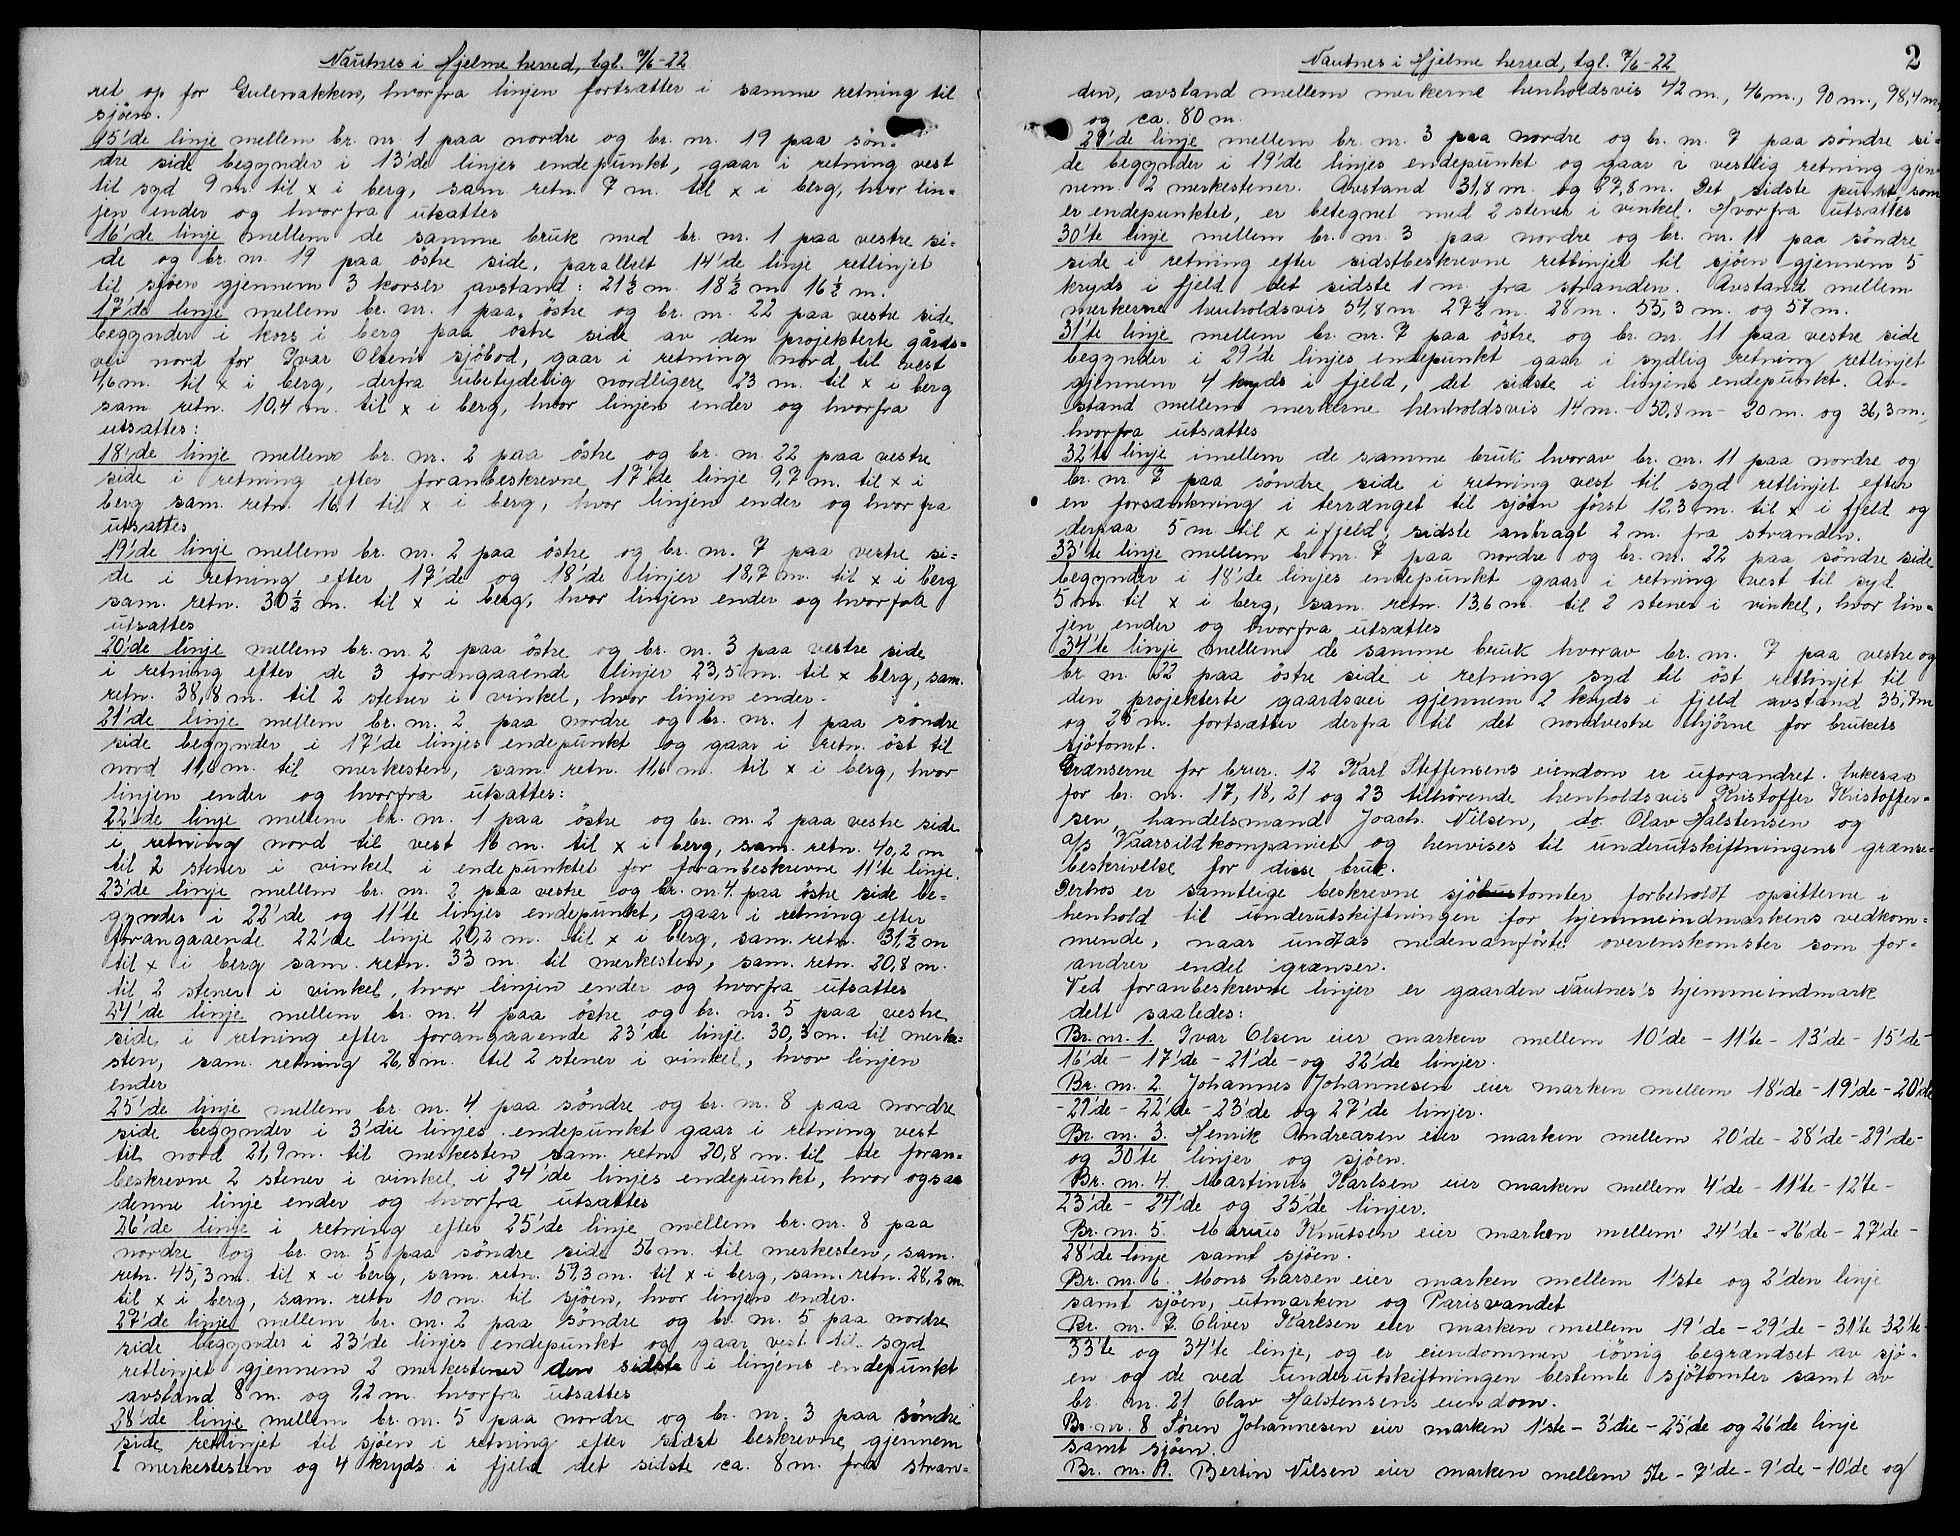 Nautnes i Hjelme herred, tgl. 7/6-22
ret op for Gulenakken, hvorfra linjen fortsætter i samme retning til
sjöen.
15'de linje mellem br. nr. 1 paa nordre og br. nr. 19 paa sön-
dre side begynder i 13'de linjes endepunkt, gaar i retning vest
til syd 9 m til x i berg, sam. retn. 7 m. til x i berg, hvor lin-
jen ender og hvorfra utsættes
16'de linje mellem de samme bruk med br. nr. 1 paa vestre si-
de og br. nr. 19 paa östre side, parallelt 14'de linje retlinjet
til sjöen gjennem 3 korser avstand: 21½ m. 18½ m 16½ m.
17'de linje mellem br. nr. 1 paa östre og br. nr. 22 paa vestre side
begynder i kors i berg paa östre side av den projekterte gårds-
vei nord for Ivar Olsen's sjöbod, gaar i retning nord til vest
46 m. til x i berg, derfra ubetydelig nordligere 23 m. til x i berg
sam. retn. 10,4 m. til x i berg, hvor linjen ender og hvorfra
utsættes:
18'de linje mellem br. nr. 2 paa östre og br. nr 22 paa vestre
side i retning efter foranbeskrevne 17'de linje 9,7 m. til x i
berg sam. retn. 16,1 til x i berg, hvor linjen ender og hvorfra
utsættes
19'de linje mellem br. nr. 2 paa östre og br. nr. 7 paa vestre si-
de i retning efter 17'de og 18'de linjer 18,7 m. til x i berg
sam. retn. 30½ m. til x i berg, hvor linjen ender og hvorfra
utsættes
20'de linje mellem br. nr. 2 paa östre og br. nr. 3 paa vestre side
i retning efter de 3 forangaaende linjer 23,5 m. til x berg, sam.
retn. 38,8 m. til 2 stener i vinkel, hvor linjen ender.
21'de linje mellem br. nr. 2 paa nordre og br. nr. 1 paa söndre
side begynder i 17'de linjes endepunkt og gaar i retn. öst til
nord 11,6 m. til merkesten, sam. retn. 11,6 m. til x i berg, hvor
linjen ender og hvorfra utsættes:
22'de linje mellem br. nr. 1 paa östre og br. nr. 2 paa vestre side
i retning nord til vest 16 m. til x i berg, sam. retn. 40,2 m
til 2 stener i vinkel i endepunktet for foranbeskrevne 11'te linje.
23'de linje mellem br. nr. 2 paa vestre og br. nr. 4 paa östre side be-
gynder i 22'de og 11'te linjes endepunkt, gaar i retning efter
forangaaende 22'de linje 20,2 m. til x i berg, sam. retn. 31½ m
til x i berg sam. retn. 33 m. til merkesten, sam. retn. 20,8 m.
til 2 stener i vinkel, hvor linjen ender og hvorfra utsættes
24'de linje mellem br. nr. 4 paa östre og br. nr. 5 paa vestre
side i retning efter forangaaende 23'de linje 30,3 m. til merke-
sten, sam. retning 26,8 m. til 2 stener i vinkel, hvor linjen
ender
25'de linje mellem br. nr. 4 paa söndre og br. nr. 8 paa nordre
side begynder i 3'die linjes endepunkt gaar i retning vest
til nord 21,9 m. til merkesten sam. retn 20,8 m. til de foran-
beskrevne 2 stener i vinkel i 24'de linjes endepunkt, hvor ogsaa
denne linje ender og hvorfra utsættes
26'de linje i retning efter 25'de linje mellem br. nr. 8 paa
nordre og br. nr. 5 paa söndre side 56 m. til merkesten, sam.
retn. 45,3 m. til x i berg, sam. retn. 59,3 m. til x i berg, sam. retn. 28,2 m.
til x i berg, sam. retn 10 m. til sjöen, hvor linjen ender.
27'de linje mellem br. nr. 2 paa söndre og br. nr. 5 paa nordre
side begynder i 23'de linjes endepunkt og gaar vest til syd
retlinjet gjennem 2 merkestener den sidste i linjens endepunkt
avstand 8 m. og 92 m. hvorfra utsættes
28'de linje mellem br. nr. 5 paa nordre og br. nr. 3 paa söndre
side retlinjet til sjöen i retning efter sidst beskrevne gjennem
I merkestesten og 4 kryds i fjeld det sidste ca. 8 m. fra stran-
2
Nautnes i Hjelme herred, tgl. 7/6-22
den, avstand mellem merkerne henholdsvis 42 m., 46 m., 90 m., 98,4 m.
og ca. 80 m.
29'de linje mellem br. nr. 3 paa nordre og br. nr. 7 paa söndre si-
de begynder i 19'de linjes endepunkt og gaar i vestlig retning gjen-
nem 2 merkestener. Avstand 31,8 m. og 87,8 m. Det sidste punkt som
er endepunktet, er betegnet med 2 stener i vinkel. Hvorfra utsættes
30'te linje mellem br. nr. 3 paa nordre og br. nr. 11 paa söndre
side i retning efter sidstbeskrevne retlinjet til sjöen gjennem 5
kryds i fjeld det sidste 1 m. fra stranden. Avstand mellem
merkerne henholdsvis 54,8 m. 27½ m. 28 m. 55,3 m. og 57 m.
31'te linje mellem br. nr. 7 paa östre og br. nr. 11 paa vestre side
begynder i 29'de linjes endepunkt gaar i sydlig retning retlinjet
gjennem 4 kryds i fjeld, det sidste i linjens endepunkt. Av-
stand mellem merkerne henholdsvis 14 m. - 50,8 m - 20 m. og 36,3 m.,
hvorfra utsættes
32'te linje imellem de samme bruk hvorav br. nr. 11 paa nordre og
br. nr. 7 paa söndre side i retning vest til syd retlinjet efter
en forsænkning i terrænget til sjöen först 12,3 m. til x i fjeld og
derpaa 5 m til x i fjeld, sidste anbragt 2 m. fra stranden.
33'te linje mellem br. nr. 7 paa nordre og br. nr. 22 paa söndre side
begynder i 18'de linjes endepunkt gaar i retning vest til syd
5 m til x i berg, sam. retn. 13,6 m. til 2 stener i vinkel, hvor lin-
jen ender og hvorfra utsættes
34'te linje mellem de samme bruk hvorav br. nr. 7 paa vestre og
br nr 22 paa östre side i retning syd til öst retlinjet til
den projekterte gaardsvei gjennem 2 kryds i fjeld avstand 35,7 m
og 25 m. fortsætter derfra til det nordvestre hjörne for brukets
sjötomt.
Grænserne for br.nr. 12 Karl Steffensens eiendom er uforandret. Likesaa
for br. nr. 17, 18, 21 og 23 tilhörende henholdsvis Kristoffer Kristoffer-
sen, handelsmand Joach. Nilsen, do. Olav Halstensen og
A/S "Vaarsildkompaniet og henvises til underutskiftningens grænse-
beskrivelse for disse bruk.
Derhos er samtlige beskrevne sjötomter forbeholdt opsitterne i
henhold til underutskiftningen for hjemmeindmarkens vedkom-
mende, naar undtas nedenanförte overenskomster som for-
andrer endel grænser.
Ved foranbeskrevne linjer er gaarden Nautnes's hjemmeindmark
delt saaledes:
Br. nr. 1. Ivar Olsen eier marken mellem 10'de - 11'te - 13'de - 15'de -
16'de - 17'de - 21'de - og 22'de linjer.
Br. nr. 2. Johannes Johannesen eier marken mellem 18'de - 19'de - 20'de
- 21'de - 22'de - 23'de og 27'de linjer.
Br. nr. 3. Henrik Andreasen eier marken mellem 20'de - 28'de - 29'de -
og 30'te linjer og sjöen.
Br. nr. 4. Martinus Karlsen eier marken mellem 4'de - 11'te - 12'te -
23'de - 24'de og 25'de linjer.
Br. nr. 5. Marius Knutsen eier marken mellem 24'de - 26'de - 27'de -
28'de linje samt sjöen.
Br. nr. 6. Mons Larsen eier marken mellem 1'ste og 2'den linje
samt sjöen, utmarken og Parisvandet
Br. nr. 7. Oliver Karlsen eier marken mellem 19'de - 29'de - 31'te 32'te -
33'te og 34'te linje, og er eiendommen iövrig begrændset av sjö-
en og de ved underutskiftningen bestemte sjötomter samt av
br. nr. 21 Olav Halstensens eiendom.
Br. nr. 8 Sören Johannesen eier marken 1'ste - 3'die - 25'de og 26'de linje
samt sjöen.
Br. nr. 9. Bertin Nilsen eier marken mellem 5te - 7'de - 9'de - 10'de og